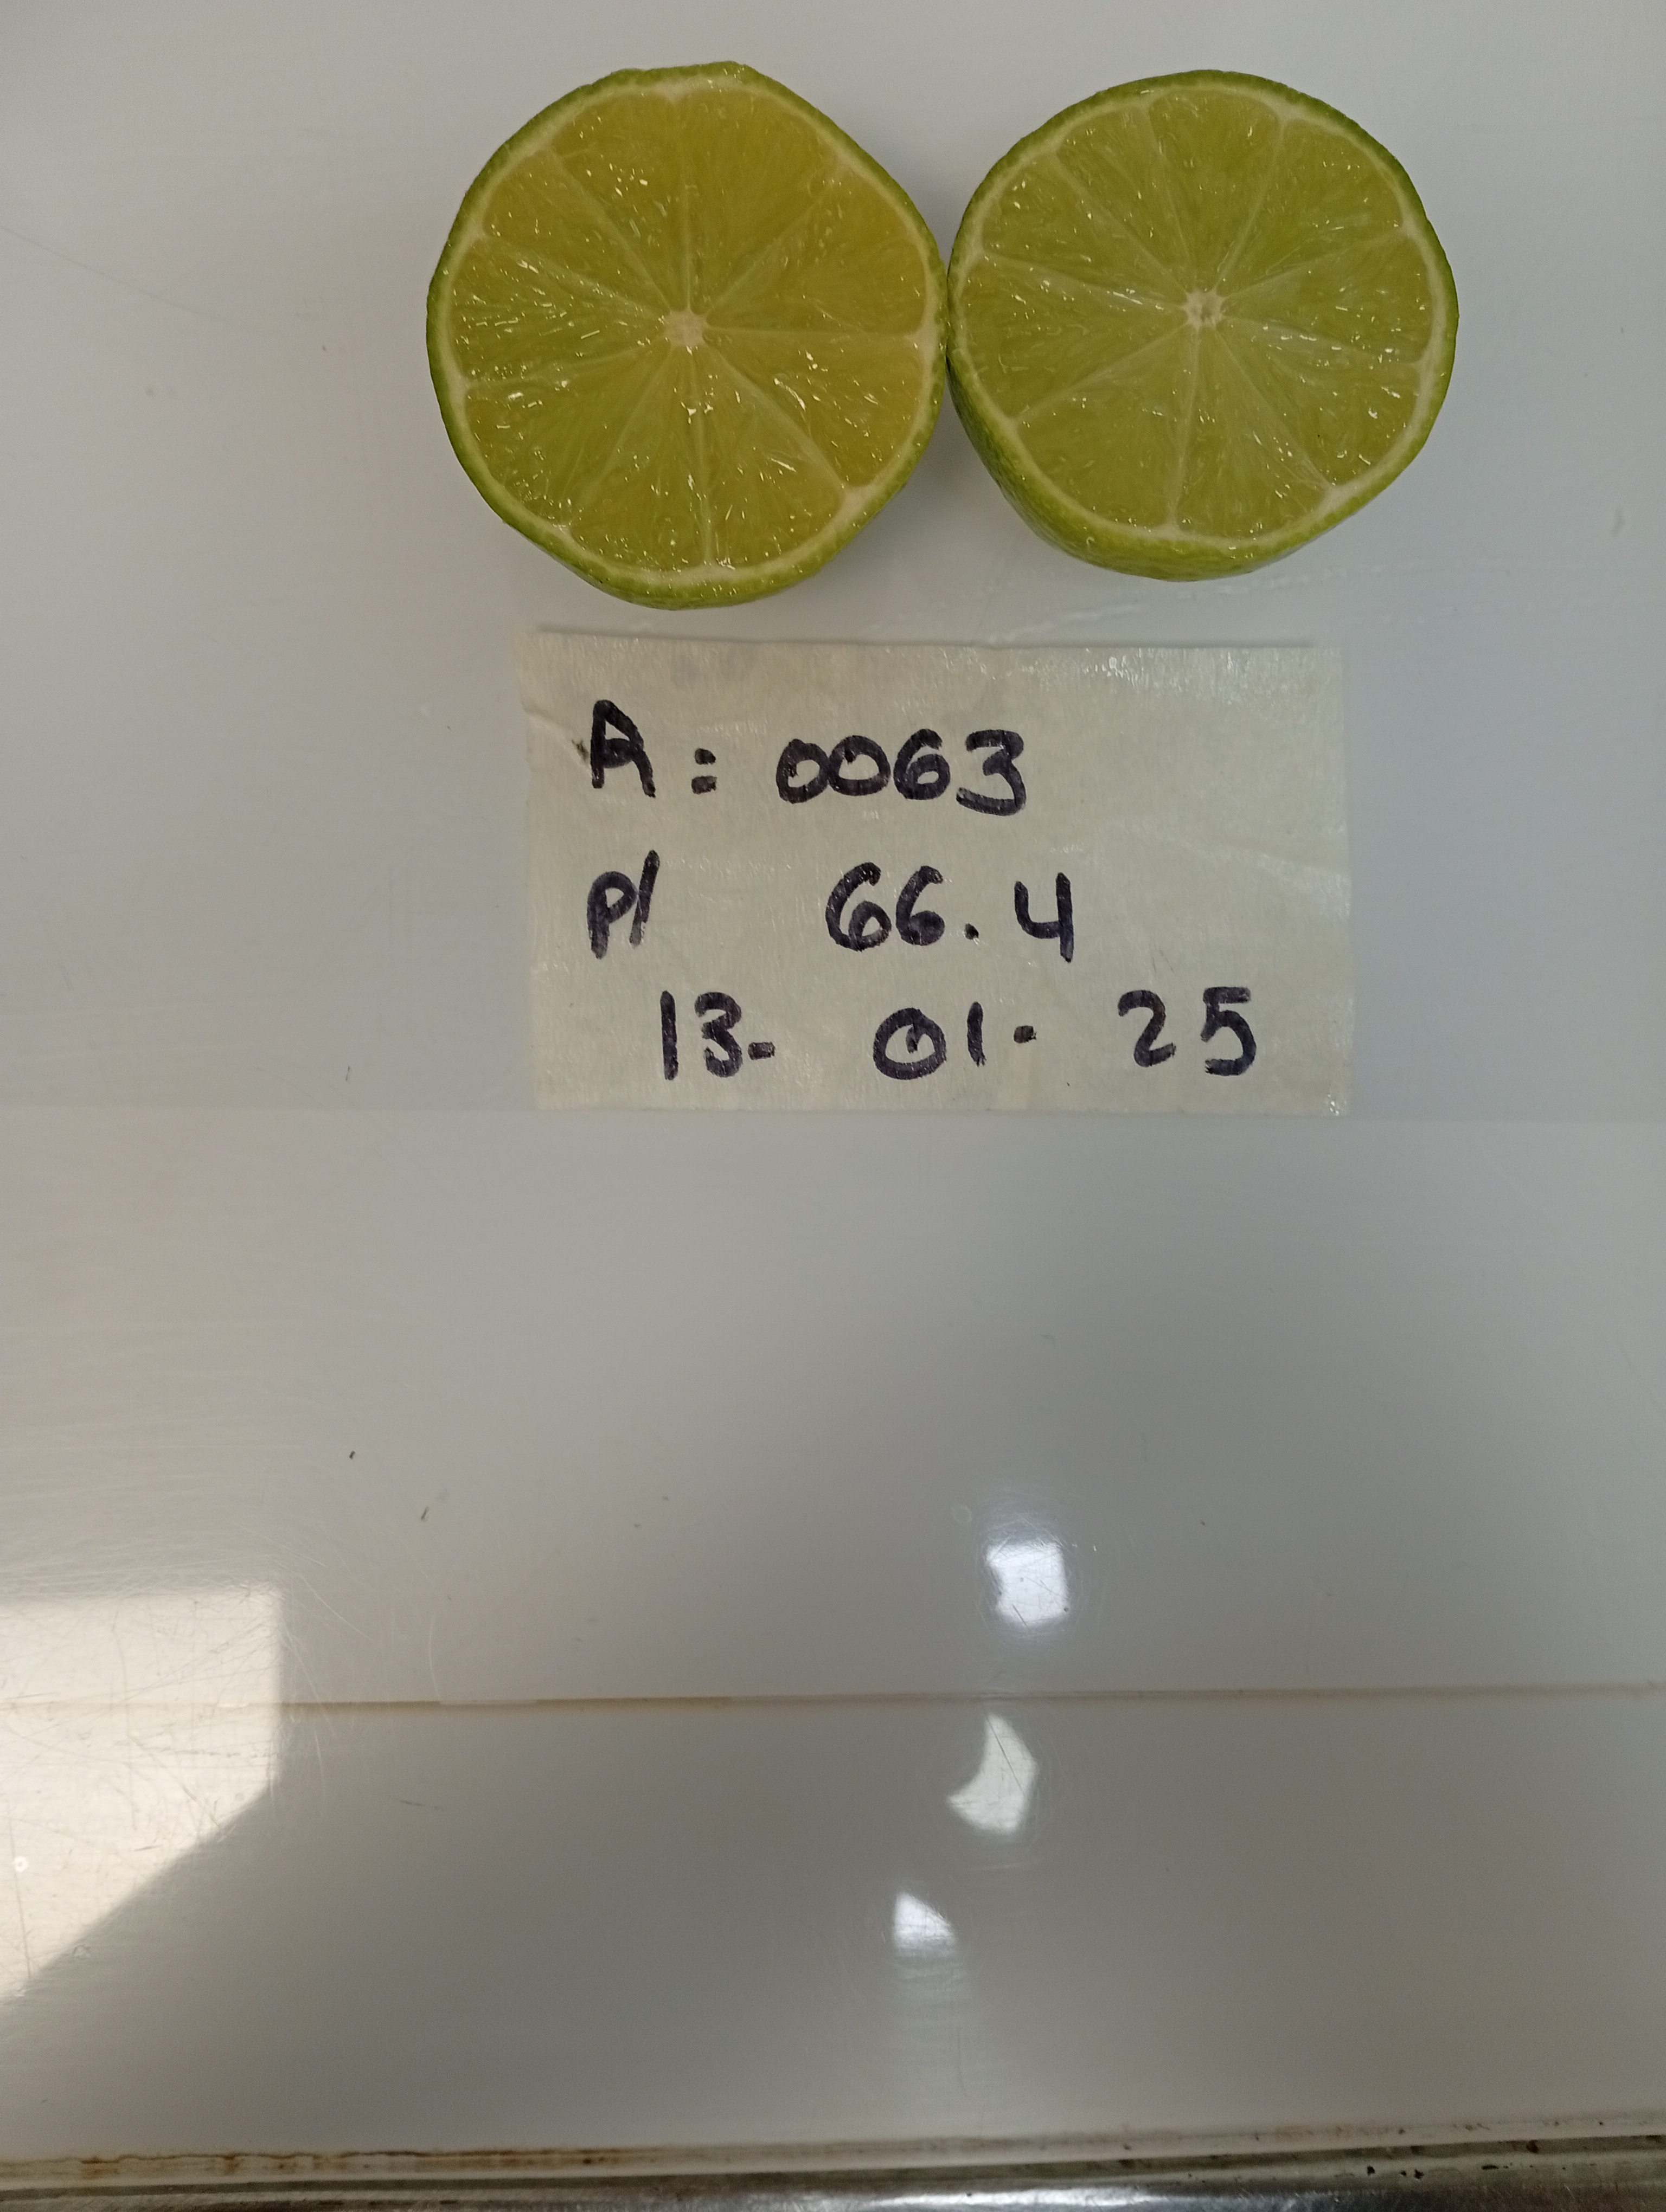 A: 0063
P/ 66.4
13- 01- 25